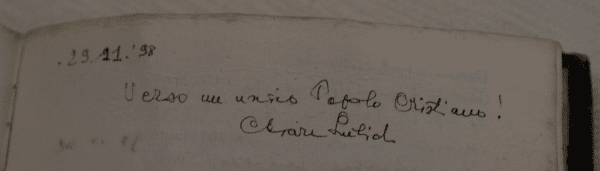 29.11.'98
Verso un unico Popolo Cristiano!
Chiara Lubich